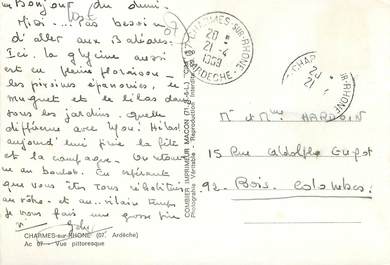 Bonjour du demi-
Midi ... Pas besoin
d'aller aux Baléares.
Ici, la glycine aussi
est en pleine floraison -
les pivoines épanouies, le
muguet et le lilas dans
tous les jardins. Quelle
différence avec Lyon! Hélas!
aujourd'hui finie la fête
et la campagne. On retourne
au boulot. En espérant
que vous êtes tous rétablis
au rôle - et au... vilain temps
Je vous fais une grosse bise
CHARMES-sur-RHONE (07. Ardèche)
Ac 07 - Vue pittoresque
COMBIER IMPRIMEUR MACON (71-S.-et-L.)
Photographie Véritable - Reproduction Interdite
07 CHARMES-SUR-RHONE
20 H
21-4
1969
ARDECHE
CHARMES-SUR-RHONE
20 H
21-4
M et Mme HARDOIN
15 Rue Adolphe Guyot
92. Bois Colombes.